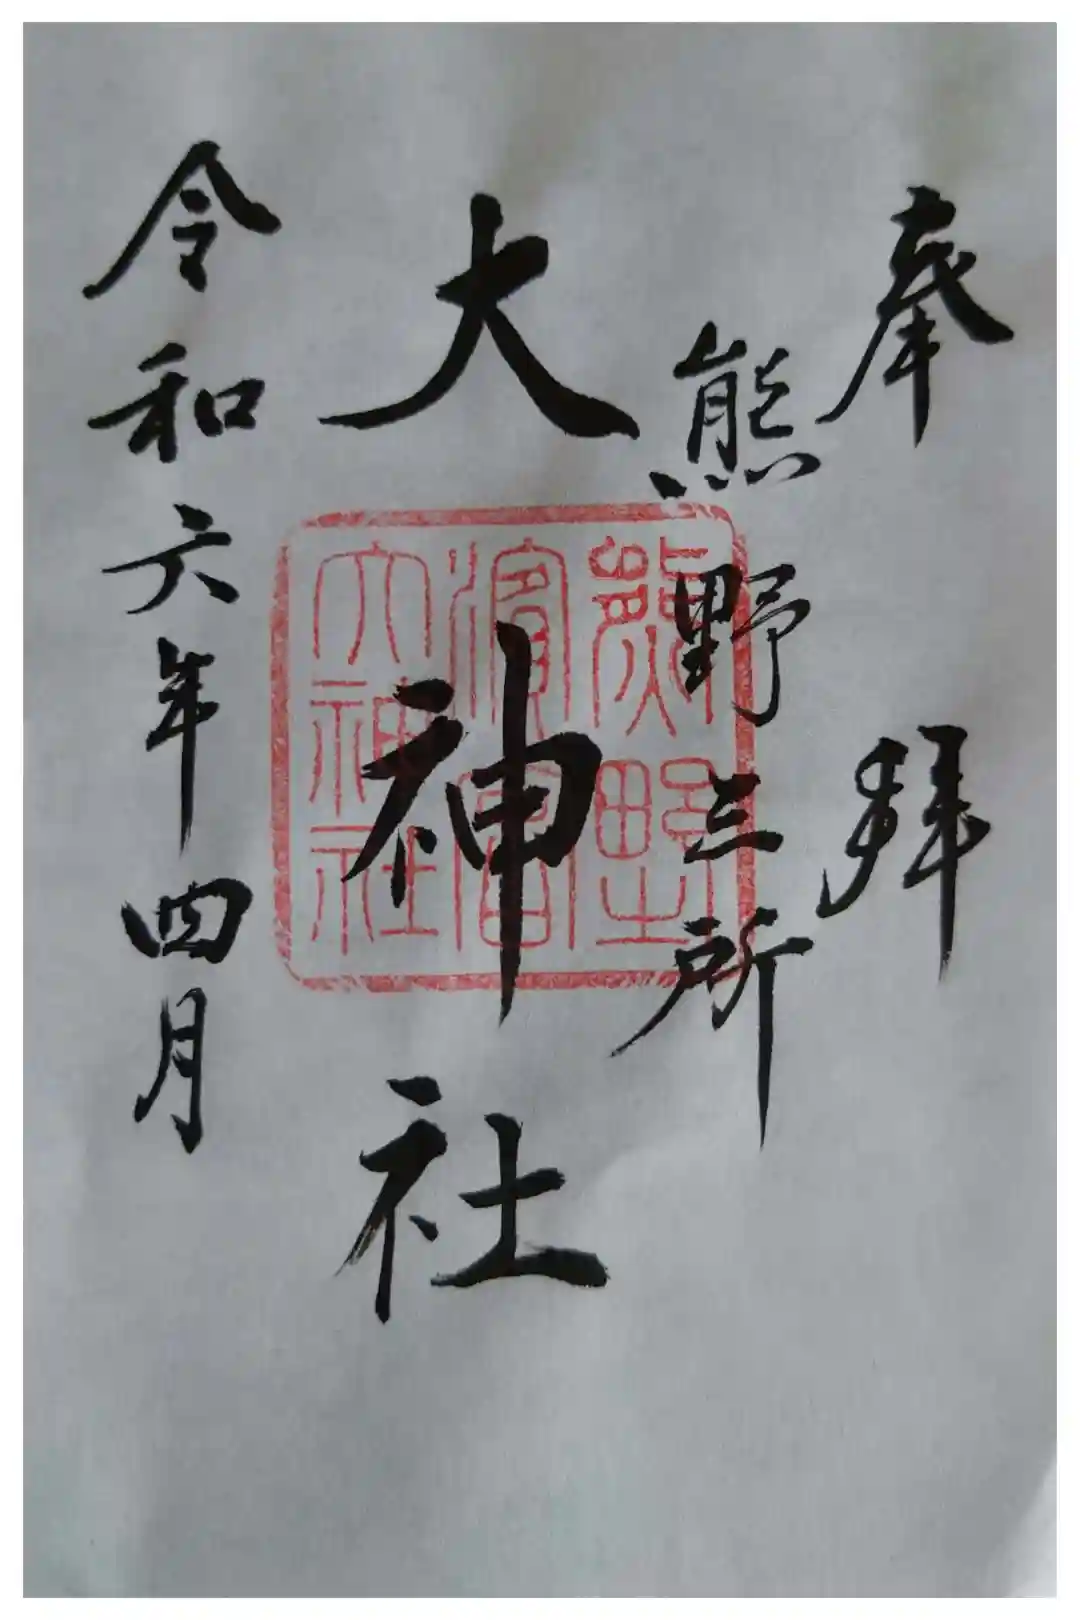 奉拜
熊野三所
大神社
令和六年四月
熊野
濱宮
大神社